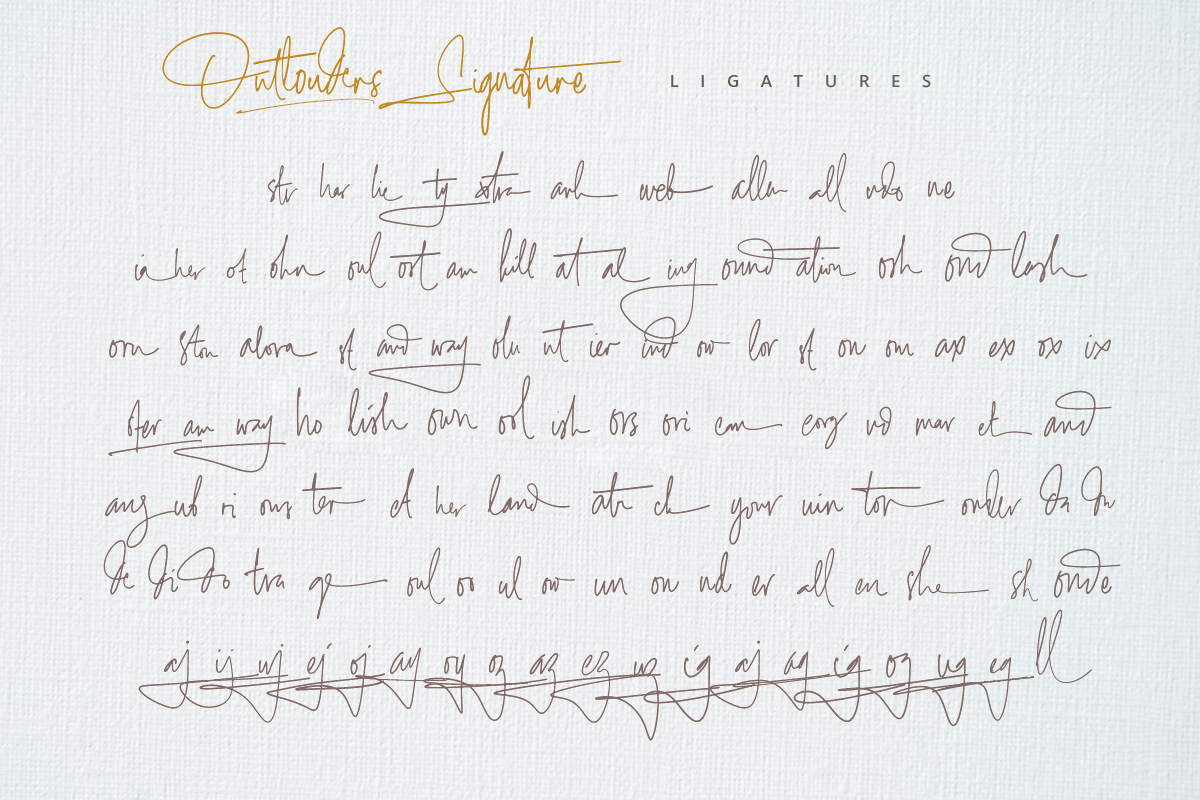 Outlouders Signature LIGATURES
str har lie ty xtra anh web allen all ndo ne
ia her of ohn oul ost am hill at al ing ound ation osh ond lash
orn ston alora st and way olu nt ier ind ow lor st on om ax ex ox ix
ffer am way ho lish own ool ish ors ori eam eorg nd mar et and
ang ub ri our ter et her land atr ck your uin tor onder
tra qe oul oo ul ow un on nd er all en she sh onde
aj ij uj ej oj ay oy oz az ez uz ig aj ag ig og ug eg ll